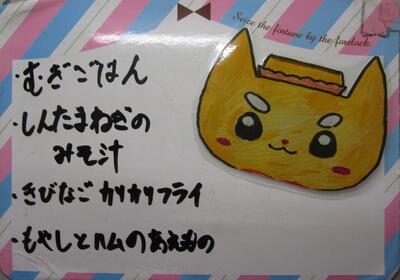 Seize the fortune by the forelock.
・むぎごはん
・しんたまねぎの
みそ汁
・きびなご カリカリフライ
・もやしとハムのあえもの